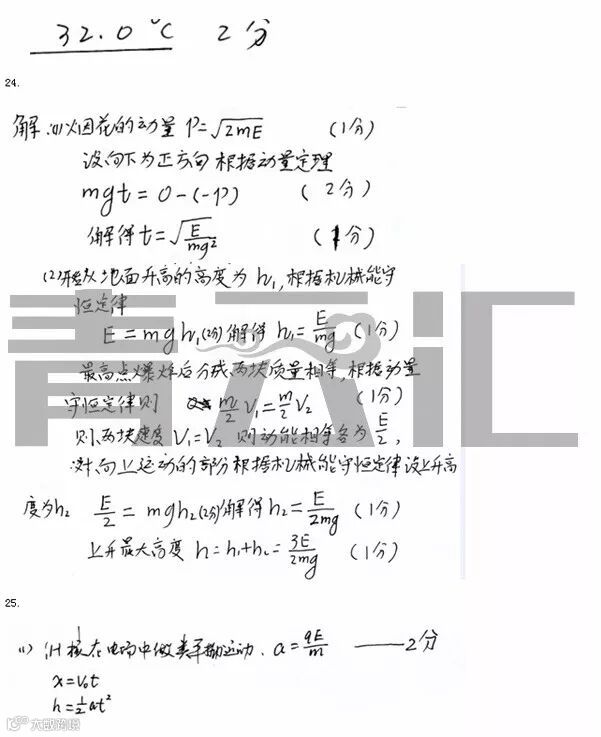 32.0℃ 2分
24.
解.(1)烟花的动量 P=√2mE (1分)
设向下为正方向 根据动量定理
mgt = 0-(-P) (2分)
解得 t=√E/mg² (1分)
(2)开始从地面升高的高度为 h₁,根据机械能守
恒定律
E = mgh₁(2分)解得 h₁=E/mg (1分)
最高点爆炸后分成两块质量相等,根据动量
守恒定律则 m/2 V₁=m/2 V₂ (1分)
则两块速度 V₁=V₂ 则动能相等各为 E/2,
对向上运动的部分根据机械能守恒定律设上升高
度为h₂ E/2 = mgh₂(2分)解得 h₂=E/2mg (1分)
上升最大高度 h=h₁+h₂=3E/2mg (1分)
青六汇
25.
(1) ¹₁H核在电场中做类平抛运动. a=qE/m ——2分
x=v₀t
h=½at²
大鹹跨境